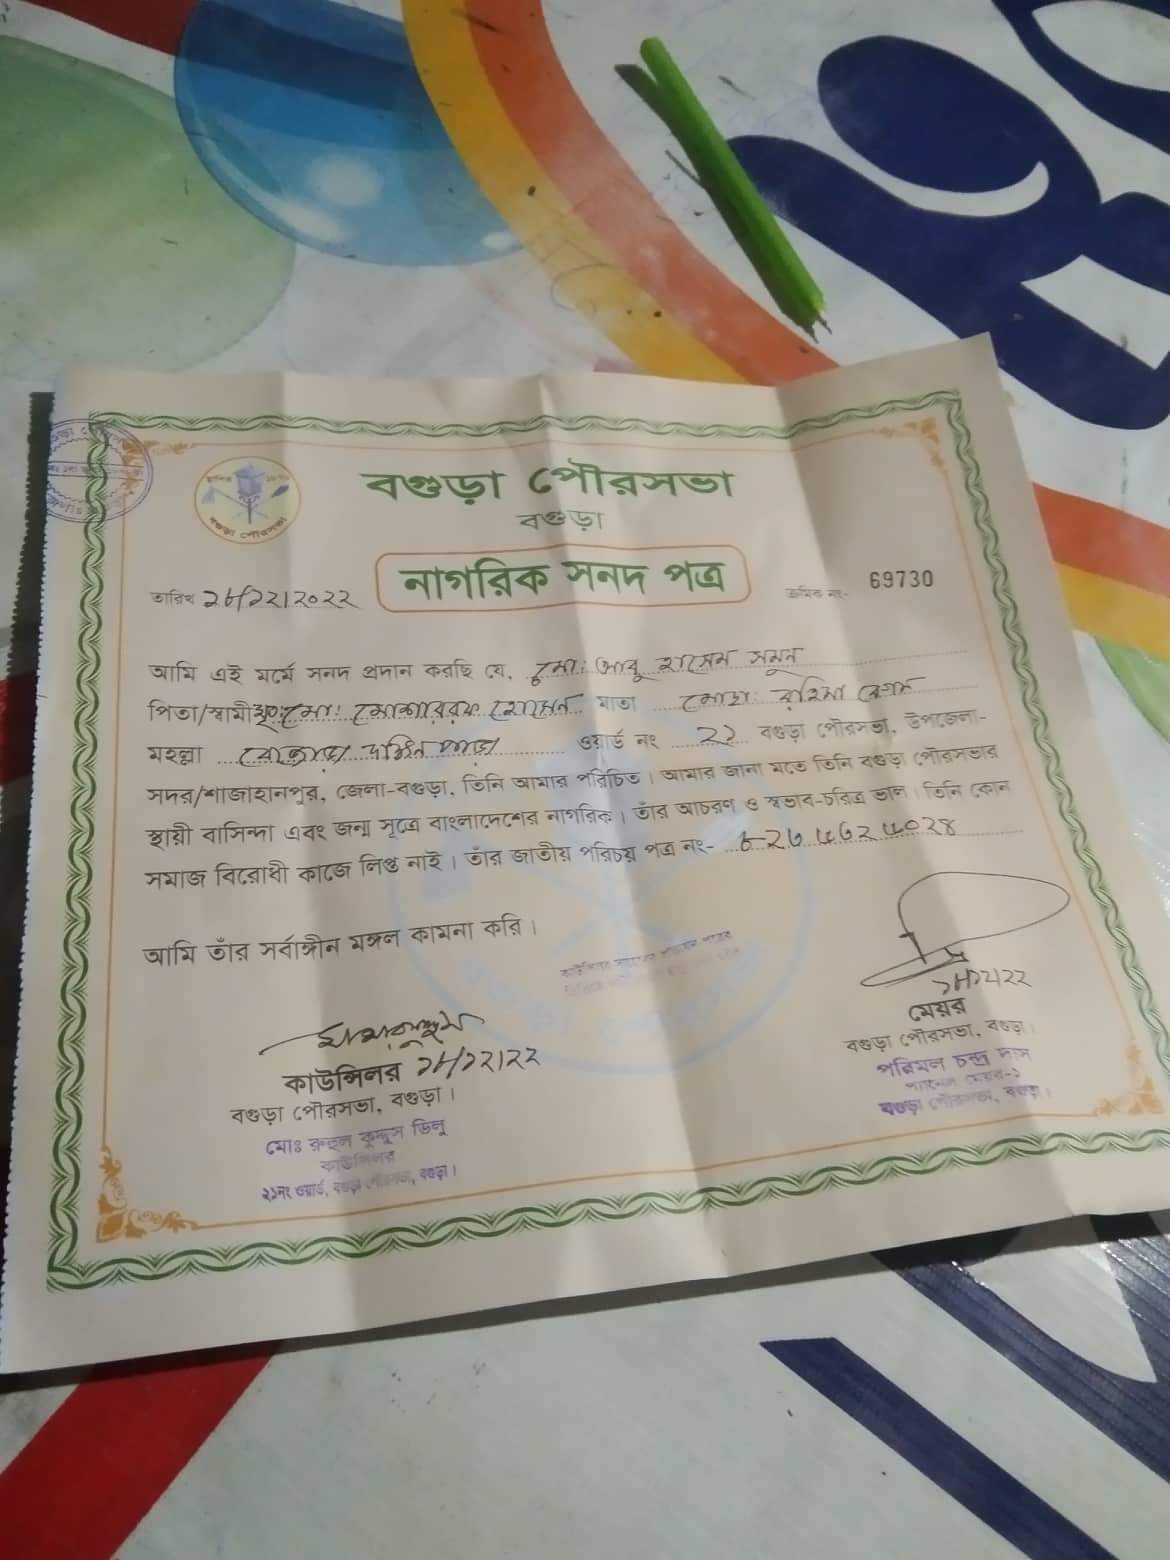 বগুড়া পৌরসভা
বগুড়া
নাগরিক সনদ পত্র
তারিখ ১৮/১২/২০২২
ক্রমিক নং- 69730
আমি এই মর্মে সনদ প্রদান করছি যে, মো: আবু হাসেম সুমন
পিতা/স্বামী মো: মোশাররফ হোসেন মাতা মোছা: রহিমা বেগম
মহল্লা দক্ষিন পাড়া ওয়ার্ড নং ২১ বগুড়া পৌরসভা, উপজেলা-
সদর/শাজাহানপুর, জেলা-বগুড়া, তিনি আমার পরিচিত। আমার জানা মতে তিনি বগুড়া পৌরসভার
স্থায়ী বাসিন্দা এবং জন্ম সূত্রে বাংলাদেশের নাগরিক। তাঁর আচরণ ও স্বভাব-চরিত্র ভাল। তিনি কোন
সমাজ বিরোধী কাজে লিপ্ত নাই। তাঁর জাতীয় পরিচয় পত্র নং-
আমি তাঁর সর্বাঙ্গীন মঙ্গল কামনা করি।
১৮/১২/২২
মেয়র
বগুড়া পৌরসভা, বগুড়া।
পরিমল চন্দ্র দাস
প্যানেল মেয়র-১
বগুড়া পৌরসভা, বগুড়া।
কাউন্সিলর ১৮/১২/২২
বগুড়া পৌরসভা, বগুড়া।
মোঃ রুহুল কুদ্দুস ডিলু
কাউন্সিলর
২১নং ওয়ার্ড, বগুড়া পৌরসভা, বগুড়া।